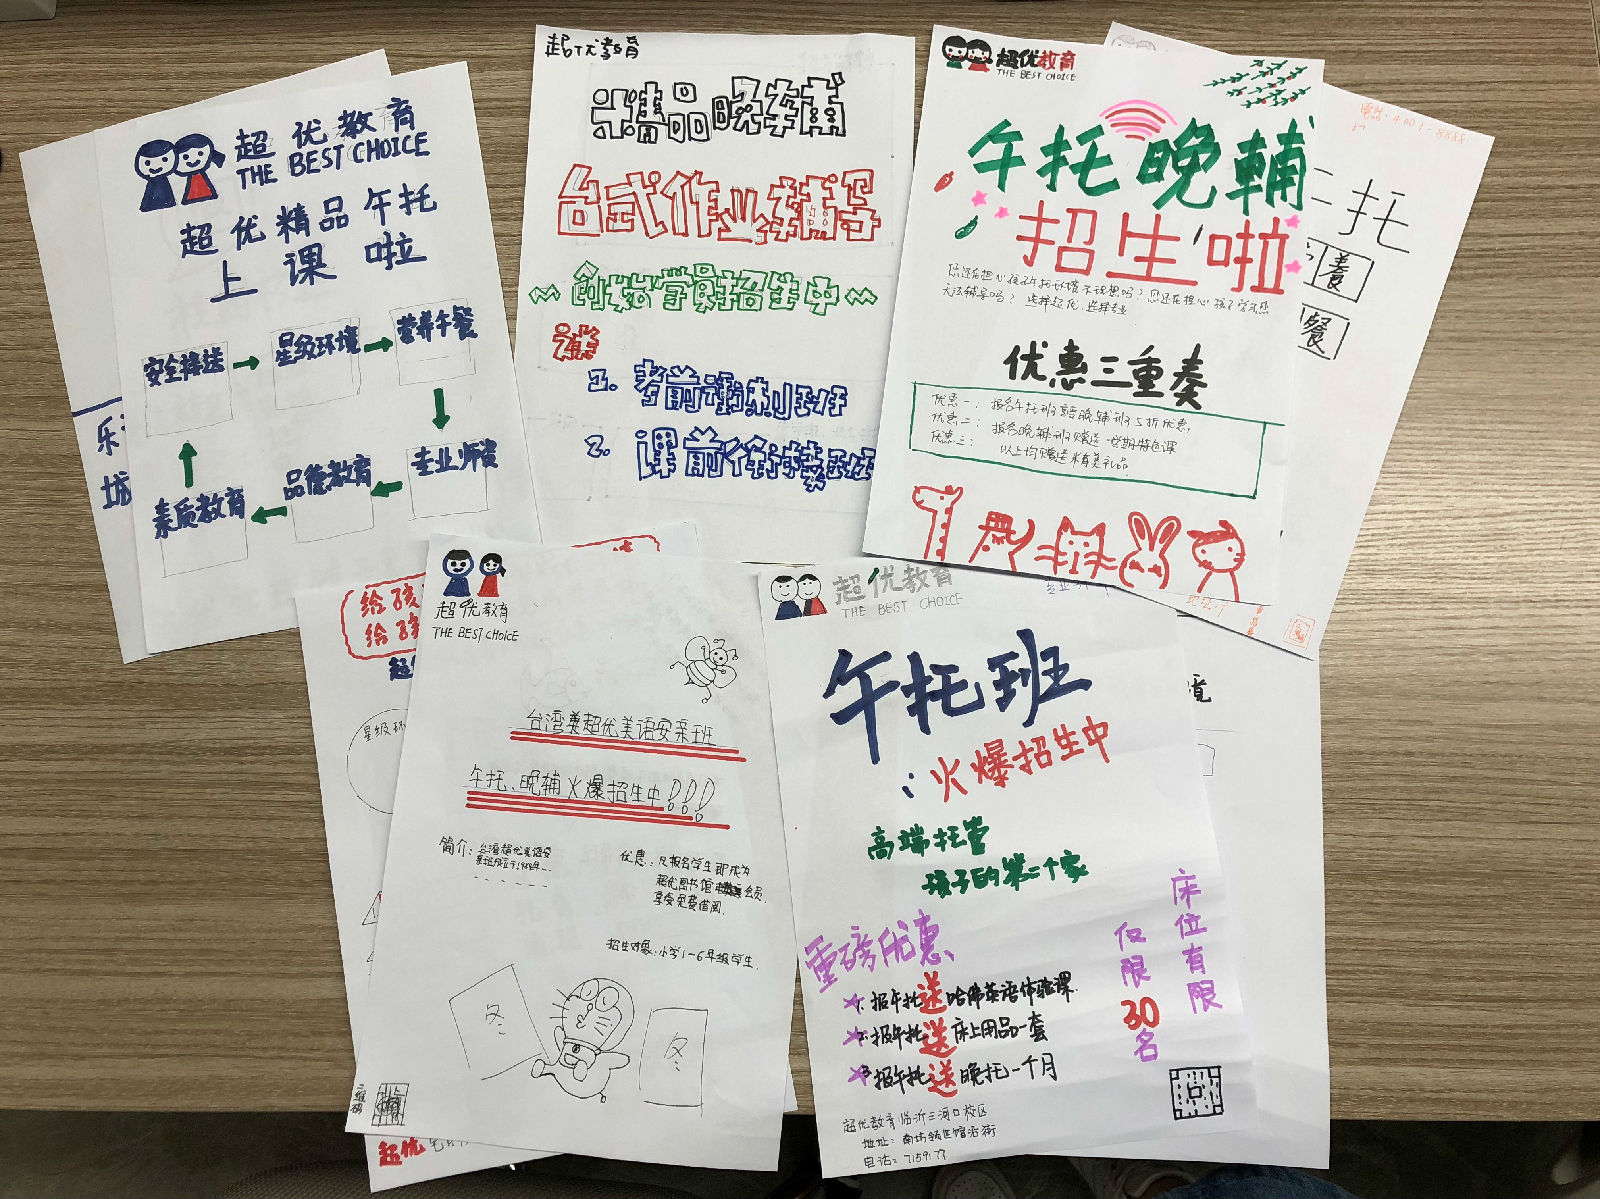 超优教育
THE BEST CHOICE
超优精品午托
上课啦
安全接送
星级环境
营养午餐
专业师资
品德教育
素质教育
乐
城
超优教育
精品晚辅
台式作业辅导
创始学员招生中
送
1. 考前冲刺班
2. 课前
超优教育
THE BEST CHOICE
午托晚辅
招生啦
您还在担心孩子午托环境不理想吗？您还在担心孩子学习您
无法辅导吗？选择超优，选择专业
优惠三重奏
优惠一：报名午托班享晚辅班5折优惠，
优惠二：报名晚辅班赠送一学期特色课
优惠三：以上均赠送精美礼品
托
養
餐
给孩
给孩
星级环
超优
超优教育
THE BEST CHOICE
台湾超优美语安亲班
午托、晚辅火爆招生中！！！
简介：台湾超优美语安
亲班成立于1988年...
优惠：凡报名学生即成为
超优图书馆会员
享受免费借阅.
招生对象：小学1-6年级学生.
冬
冬
二维码
超优教育
THE BEST CHOICE
午托班
：火爆招生中
高端托管
孩子的第二个家
重磅优惠
1. 报午托送哈佛英语体验课
2. 报午托送床上用品一套
3. 报午托送晚托一个月
床位有限
仅限30名
超优教育临沂三河口校区
地址：南坊
电话：
境